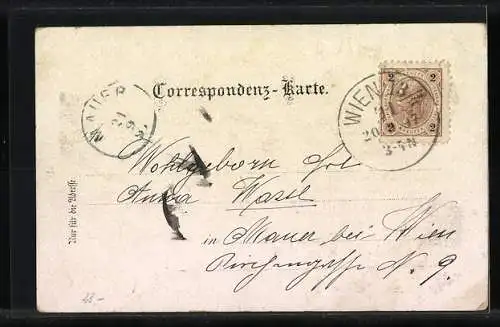 Correspondenz-Karte.
WIEN
2 2
2 2
MAUER
Wohlgeborn Frl
Anna Wassl
in Mauer bei Wien
Kirchengasse N. 9.
Nur für die Adresse.